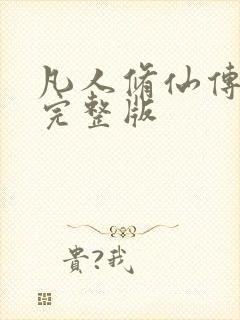 凡人脩仙傳
完整版
貴?我